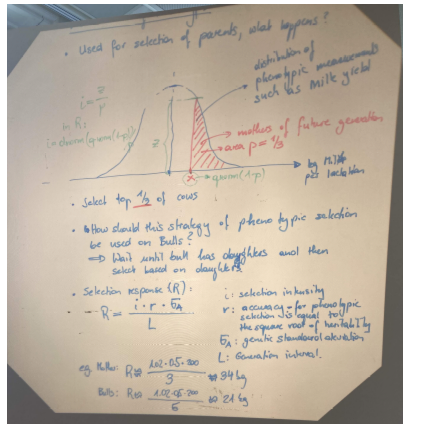 • Used for selection of parents, what happens?
distribution of
phenotypic measurements
such as Milk yield
i = z/p
in R:
i = dnorm(qnorm(1-p))/p
z
mothers of future generation
area p = 1/3
x
qnorm(1-p)
kg Milk
per lactation
• Select top 1/3 of cows
• How should this strategy of phenotypic selection
be used on Bulls?
⇒ Wait until bull has daughters and then
select based on daughters
• Selection response (R):
- R = i · r · σA / L
i: selection intensity
r: accuracy - for phenotypic
selection is equal to
the square root of heritability
σA: genetic standard deviation
L: Generation interval.
eg. Mother: R ≈ 1.02·0.5·200 / 3 ≈ 34 kg
Bulls: R ≈ / ≈ 21 kg